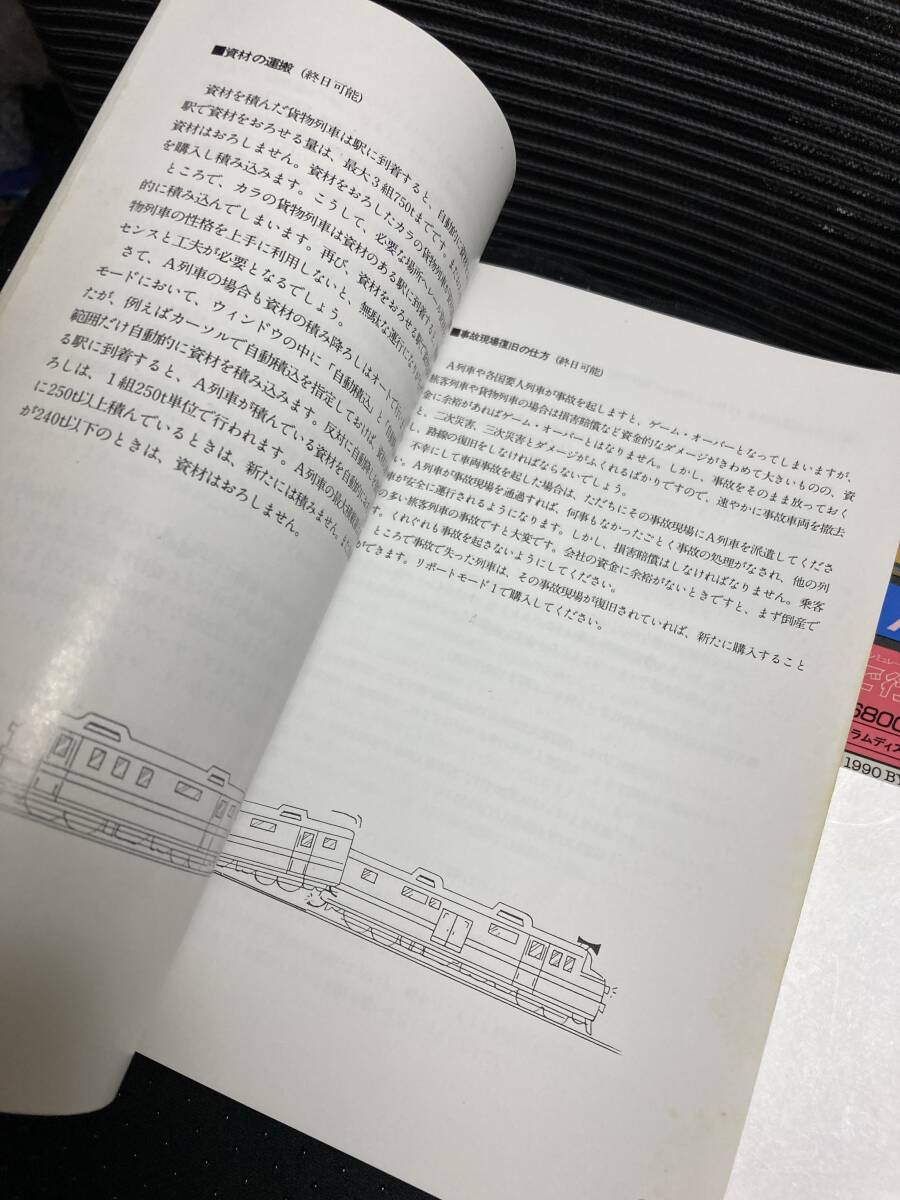 ■資材の運搬（終日可能）
資材を積んだ貨物列車は駅に到着すると、自動的に
駅で資材をおろせる量は、最大3組750tまでです。また
資材はおろしません。資材をおろしたカラの貨物列車
を購入し積み込みます。こうして、必要な場所へレール
ところで、カラの貨物列車は資材のある駅に到着する
的に積み込んでしまいます。再び、資材をおろせる駅
物列車の性格を上手に利用しないと、無駄な運行にな
センスと工夫が必要となるでしょう。
さて、A列車の場合も資材の積み降ろしはオートで行
モードにおいて、ウィンドウの中に「自動積込」と「自動
たが、例えばカーソルで自動積込を指定しておけば、
範囲だけ自動的に資材を積み込みます。反対に自動降
る駅に到着すると、A列車が積んでいる資材を自動的に
ろしは、1組250t単位で行われます。A列車の最大積載
に250t以上積んでいるときは、新たには積みません。また
が240t以下のときは、資材はおろしません。
■事故現場復旧の仕方（終日可能）
A列車や各国要人列車が事故を起しますと、ゲーム・オーバーとなってしまいますが、
旅客列車や貨物列車の場合は損害賠償など資金的なダメージがきわめて大きいものの、資
金に余裕があればゲーム・オーバーとはなりません。しかし、事故をそのまま放っておく
と、二次災害、三次災害とダメージがふくれるばかりですので、速やかに事故車両を撤去
し、路線の復旧をしなければならないでしょう。
不幸にして車両事故を起した場合は、ただちにその事故現場にA列車を派遣してくださ
い。A列車が事故現場を通過すれば、何事もなかったごとく事故の処理がなされ、他の列
車が安全に運行されるようになります。しかし、損害賠償はしなければなりません。乗客
の多い旅客列車の事故ですと大変です。会社の資金に余裕がないときですと、まず倒産で
す。くれぐれも事故を起さないようにしてください。
ところで事故で失った列車は、その事故現場が復旧されていれば、新たに購入すること
ができます。リポートモード1で購入してください。
6800
ラムディス
1990 BY